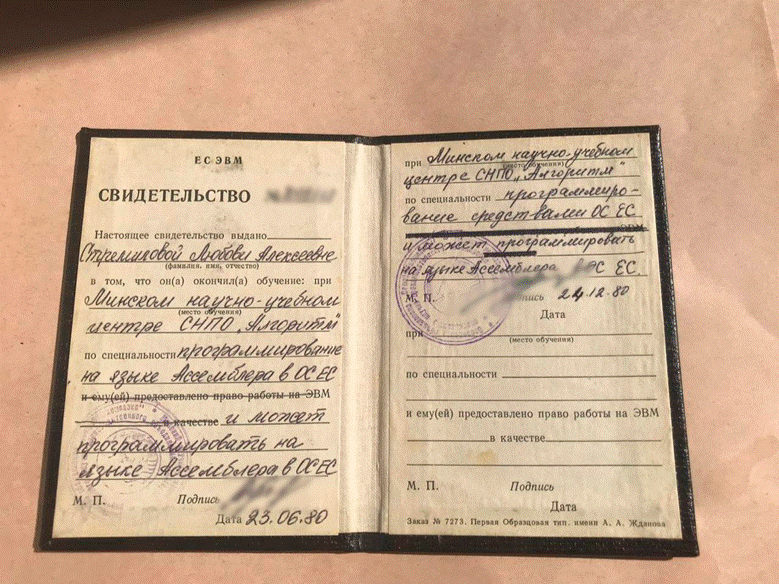 ЕС ЭВМ
СВИДЕТЕЛЬСТВО №
Настоящее свидетельство выдано
Стремиловой Любови Алексеевне
(фамилия, имя, отчество)
в том, что он(а) окончил(а) обучение: при
Минском научно-учебном
(место обучения)
центре СНПО „Алгоритм"
по специальности программирование
на языке Ассемблера в ОС ЕС
и ему(ей) предоставлено право работы на ЭВМ
в качестве и может
программировать на
языке Ассемблера в ОС ЕС
М. П. Подпись
Дата 23.06.80
при Минском научно-учебном
(место обучения)
центре СНПО „Алгоритм"
по специальности программиро-
вание средствами ОС ЕС
ЭВМ
и может программировать
на языке Ассемблера в ОС ЕС
М. П. Подпись 24.12.80
Дата
при
(место обучения)
по специальности
и ему(ей) предоставлено право работы на ЭВМ
в качестве
М. П. Подпись
Дата
Заказ № 7273. Первая Образцовая тип. имени А. А. Жданова